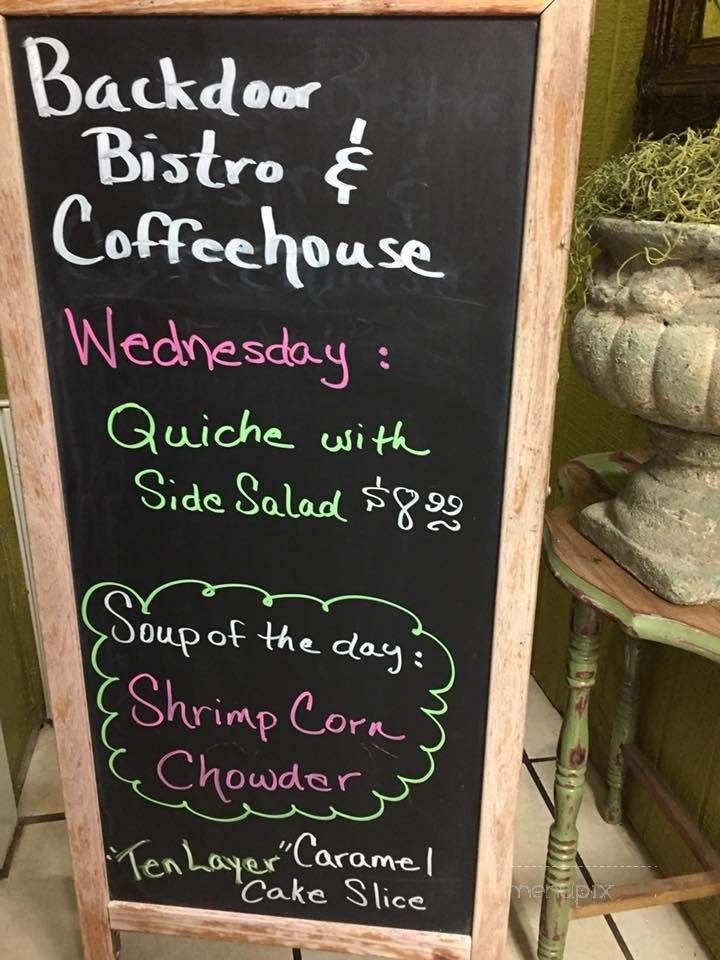 Backdoor
Bistro &
Coffeehouse
Wednesday:
Quiche with
Side Salad $8.99
Soup of the day:
Shrimp Corn
Chowder
"Ten Layer" Caramel
Cake Slice
menupix